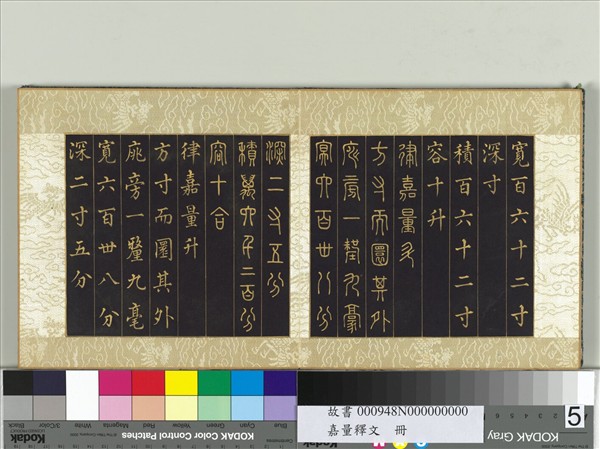 冥百六十二寸
深寸
積百六十二寸
容十升
律嘉量升
方寸而圜其外
庣旁一釐九豪
冥六百卌八分
深二寸五分
積萬六千二百分
容十合
律嘉量升
方寸而圜其外
庣旁一釐九毫
冥六百卌八分
深二寸五分
故書 000948N000000000
嘉量釋文 冊
5
Blue Cyan Green Yellow Red Magenta White 3/Color Black
Kodak
KODAK Color Control Patches
KODAK Gray